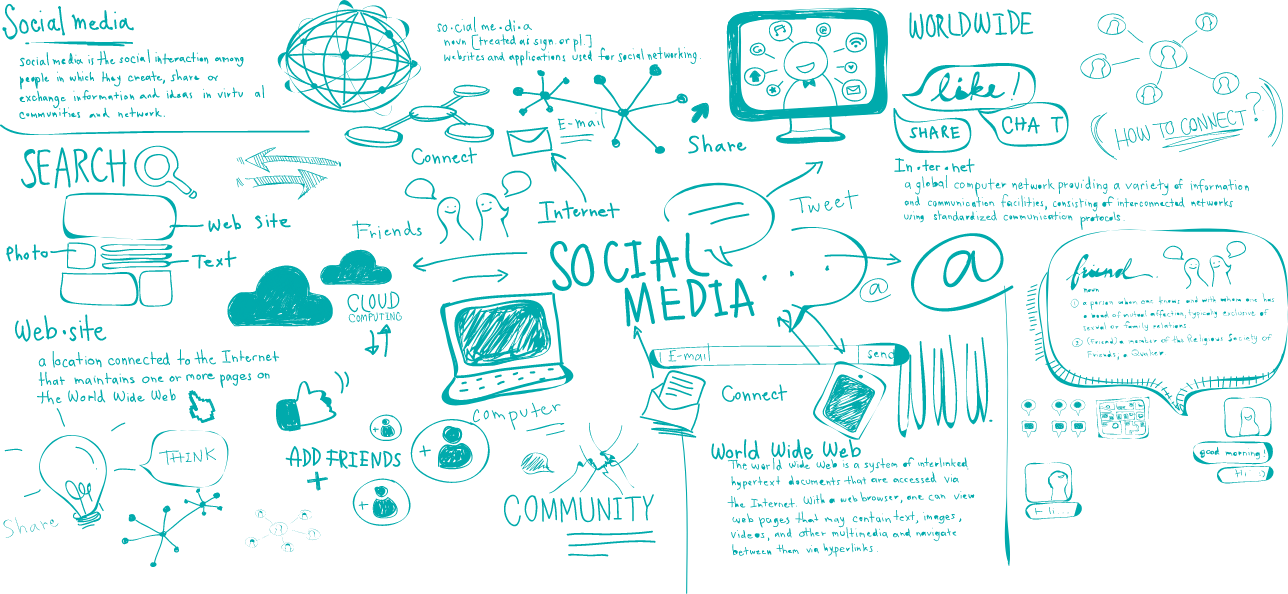 Social media
social media is the social interaction among
people in which they create, share or
exchange information and ideas in virtu al
communities and network.
so·cial me·di·a
noun [treated as sign. or pl.]
websites and applications used for social networking.
WORLDWIDE
like!
SHARE
CHA T
HOW TO CONNECT?
E-mail
Connect
Share
SEARCH
Web site
Photo
Text
Friends
Internet
Tweet
In·ter·net
a global computer network providing a variety of information
and communication facilities, consisting of interconnected networks
using standardized communication protocols.
SOCIAL
MEDIA
@
@
CLOUD
COMPUTING
friend
noun
① a person whom one knows and with whom one has
a bond of mutual affection, typically exclusive of
sexual or family relations
② (Friend) a member of the Religious Society of
Friends, a Quaker
Web·site
a location connected to the Internet
that maintains one or more pages on
the World Wide Web
E-mail
send
Connect
WWW.
computer
THINK
Share
ADD FRIENDS
+
+
+
+
COMMUNITY
World Wide Web
The world Wide Web is a system of interlinked
hypertext documents that are accessed via
the Internet. With a web browser, one can view
web pages that may contain text, images,
videos, and other multimedia and navigate
between them via hyperlinks.
good morning!
Hi...
Hi...